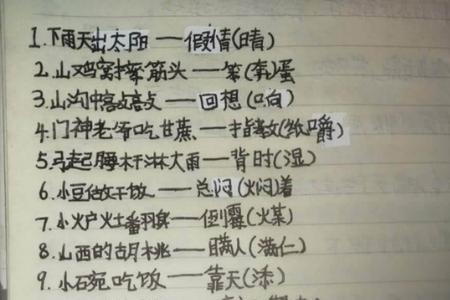 1.下雨天出太阳——假情(晴)
2.山鸡窝里摔筋头——笨(奔)蛋
3.山沟中喜鼓——回想(响)
4.门神老爷吃甘蔗——指教(纸嚼)
5.马起腾杆淋大雨——背时(湿)
6.小豆做干饭——总闷(焖)着
7.小炉火土番——倒霉(火某)
8.山西的胡桃——瞒人(满仁)
9.小石碗吃饭——靠天(添)